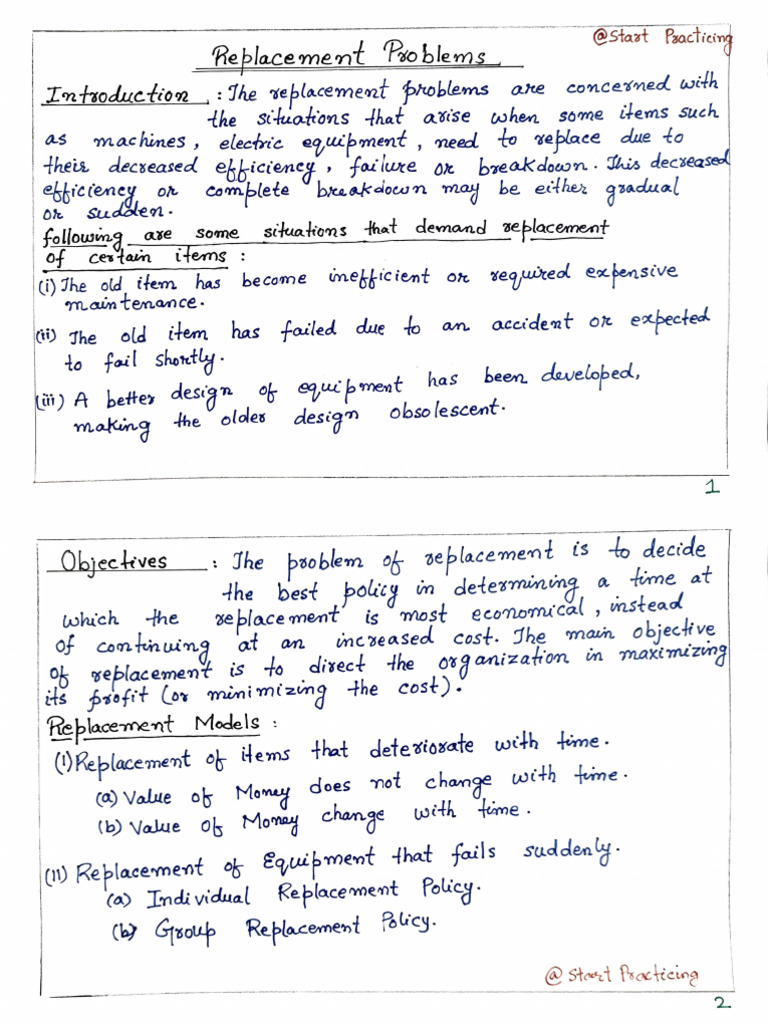 @Start Practicing
Replacement Problems
Introduction : The replacement problems are concerned with
the situations that arise when some items such
as machines, electric equipment, need to replace due to
their decreased efficiency, failure or breakdown. This decreased
efficiency or complete breakdown may be either gradual
or sudden.
following are some situations that demand replacement
of certain items :
(i) The old item has become inefficient or required expensive
maintenance.
(ii) The old item has failed due to an accident or expected
to fail shortly.
(iii) A better design of equipment has been developed,
making the older design obsolescent.
1
Objectives : The problem of replacement is to decide
the best policy in determining a time at
which the replacement is most economical, instead
of continuing at an increased cost. The main objective
of replacement is to direct the organization in maximizing
its profit (or minimizing the cost).
Replacement Models :
(I) Replacement of items that deteriorate with time.
(a) Value of Money does not change with time.
(b) Value of Money change with time.
(II) Replacement of Equipment that fails suddenly.
(a) Individual Replacement Policy.
(b) Group Replacement Policy.
@ Start Practicing
2